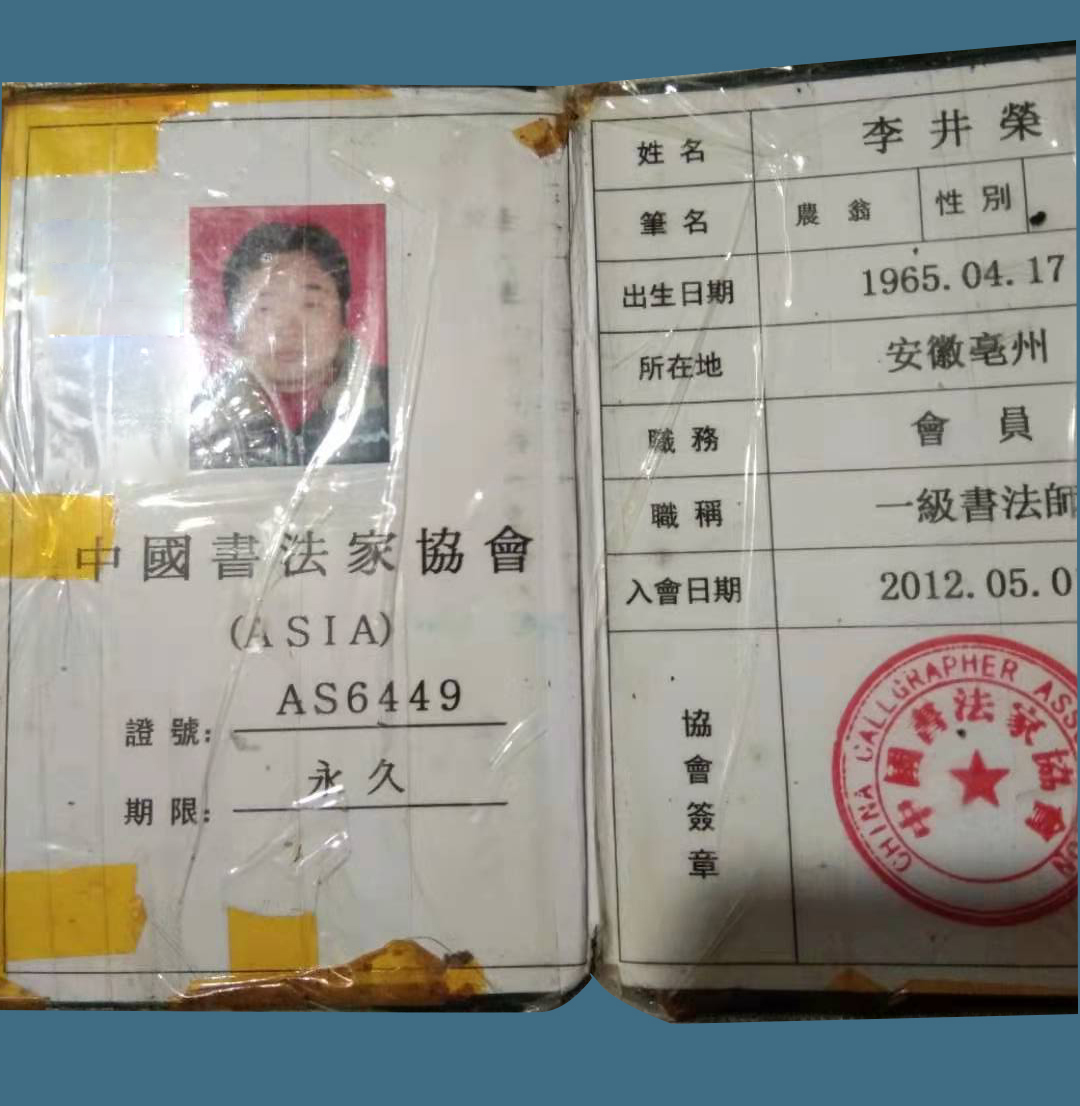 中國書法家協會
(ASIA)
證號: AS6449
期限: 永久
姓名 李井榮
筆名 農翁 性別
出生日期 1965.04.17
所在地 安徽亳州
職務 會員
職稱 一級書法師
入會日期 2012.05.0
協會簽章
CHINA CALLIGRAPHER ASS
中國書法家協會